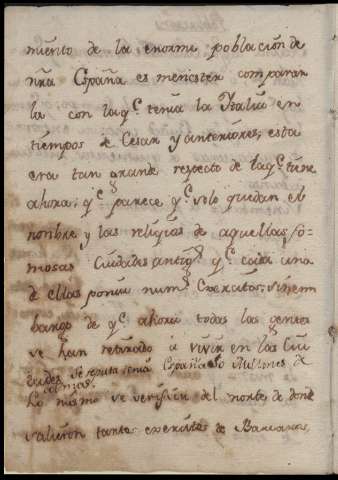 miento de la enorme población de
nra España es menester comparar
la con la q.e tenia la Italia en
tiempos de Cesar y anteriores; esta
era tan grande respecto de la q.e tiene
ahora; q.e parece q.e solo quedan el
nonbre y las reliqias de aquellas fa-
mosas Ciudades antig.s y q.e cada una
de ellas ponia num.s Exercitos: sinem
bargo de q.e ahora todas las gentes
se han retirado á vivir en las Ciu
dades. Se reputa tenia España 50 Millones de
almas.
Lo mismo se verifica del norte de donde
salieron tantos exercitos de Barbaros,